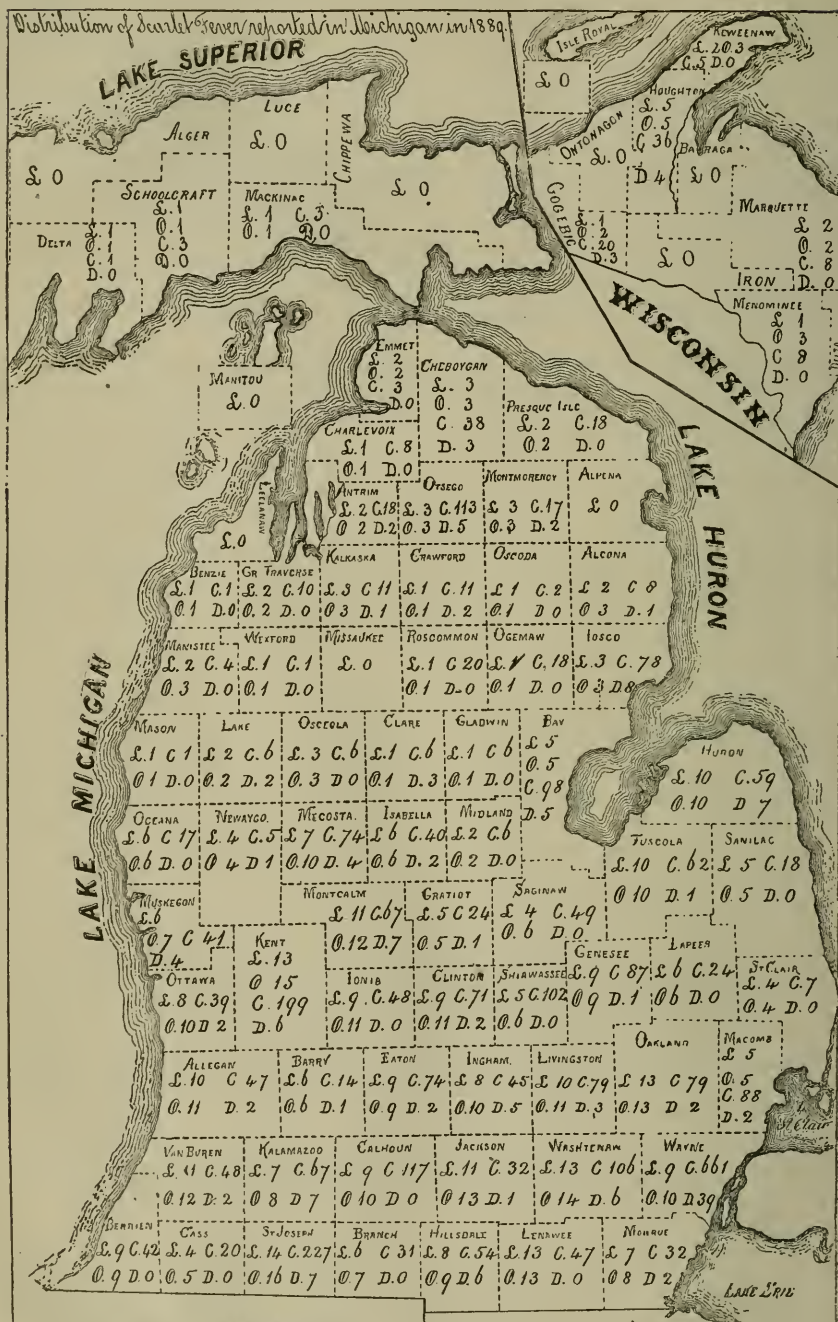 Distribution of Scarlet Fever reported in Michigan in 1889.
LAKE SUPERIOR
ISLE ROYAL
£ 0
KEWEENAW
£. 2 O. 3
C. 5 D. 0
HOUGHTON
£. 5
O. 5
C. 36
D 4
ONTONAGON
£. 0
BARAGA
£ 0
GOGEBIC
£. 1
O. 2
C. 20
D. 3
£ 0
MARQUETTE
£ 2
O. 2
C. 8
D. 0
IRON
MENOMINEE
£ 1
O 3
C 8
D. 0
WISCONSIN
ALGER
£ 0
LUCE
£. 0
CHIPPEWA
£ 0
SCHOOLCRAFT
£. 1
O. 1
C. 3
D. 0
MACKINAC
£. 1 C. 3
O. 1 D. 0
DELTA
£. 1
O. 1
C. 1
D. 0
MANITOU
£. 0
EMMET
£. 2
O. 2
C. 3
D. 0
CHEBOYGAN
£. 3
O. 3
C. 38
D. 3
PRESQUE ISLE
£. 2 C. 18
O. 2 D. 0
LAKE HURON
CHARLEVOIX
£. 1 C. 8
O. 1 D. 0
LEELANAW
£. 0
ANTRIM
£. 2 C. 18
O 2 D. 2
OTSEGO
£. 3 C. 113
O. 3 D. 5
MONTMORENCY
£ 3 C. 17
O. 3 D. 2
ALPENA
£ 0
BENZIE
£. 1 C. 1
O. 1 D. 0
GR TRAVERSE
£. 2 C. 10
O. 2 D. 0
KALKASKA
£. 3 C 11
O 3 D. 1
CRAWFORD
£. 1 C. 11
O. 1 D. 2
OSCODA
£ 1 C. 2
O. 1 D 0
ALCONA
£ 2 C 8
O 3 D. 1
MANISTEE
£. 2 C. 4
O. 3 D. 0
WEXFORD
£. 1 C. 1
O. 1 D. 0
MISSAUKEE
£. 0
ROSCOMMON
£. 1 C 20
O. 1 D. 0
OGEMAW
£. 1 C. 18
O. 1 D. 0
IOSCO
£. 3 C. 78
O 3 D 8
LAKE MICHIGAN
MASON
£. 1 C 1
O 1 D. 0
LAKE
£ 2 C. 6
O. 2 D. 2
OSCEOLA
£. 3 C. 6
O. 3 D 0
CLARE
£. 1 C. 6
O. 1 D. 3
GLADWIN
£. 1 C 6
O. 1 D. 0
BAY
£ 5
O. 5
C. 98
D. 5
HURON
£. 10 C. 59
O. 10 D 7
OCEANA
£. 6 C 17
O. 6 D. 0
NEWAYGO.
£. 4 C. 5
O 4 D 1
MECOSTA.
£ 7 C. 74
O. 10 D. 4
ISABELLA
£ 6 C. 40
O. 6 D. 2
MIDLAND
£. 2 C. 6
O. 2 D. 0
TUSCOLA
£. 10 C. 62
O 10 D. 1
SANILAC
£ 5 C. 18
O. 5 D. 0
MUSKEGON
£. 6
O. 7 C 41
D. 4
MONTCALM
£. 11 C. 67
O. 12 D. 7
GRATIOT
£. 5 C 24
O. 5 D. 1
SAGINAW
£ 4 C. 49
O. 6 D. 0
KENT
£. 13
O 15
C. 199
D. 6
OTTAWA
£. 8 C. 39
O. 10 D 2
IONIA
£. 9. C. 48
O. 11 D. 0
CLINTON
£. 9 C. 71
O. 11 D. 2
SHIAWASSEE
£ 5 C. 102
O. 6 D. 0
GENESEE
£. 9 C 87
O 9 D. 1
LAPEER
£ 6 C. 24
O 6 D. 0
ST CLAIR
£. 4 C. 7
O. 4 D. 0
ALLEGAN
£. 10 C 47
O. 11 D. 2
BARRY
£. 6 C. 14
O. 6 D. 1
EATON
£. 9 C. 74
O. 9 D. 2
INGHAM.
£ 8 C 45
O. 10 D. 5
LIVINGSTON
£ 10 C. 79
O. 11 D. 3
OAKLAND
£ 13 C 79
O. 13 D 2
MACOMB
£ 5
O. 5
C. 88
D. 2
L. St Clair
VAN BUREN
£. 11 C. 48
O. 12 D. 2
KALAMAZOO
£. 7 C. 67
O 8 D 7
CALHOUN
£ 9 C 117
O 10 D 0
JACKSON
£. 11 C. 32
O 13 D. 1
WASHTENAW
£. 13 C 106
O 14 D. 6
WAYNE
£. 9 C. 661
O. 10 D 39
BERRIEN
£. 9 C. 42
O. 9 D. 0
CASS
£. 4 C. 20
O. 5 D. 0
ST JOSEPH
£. 14 C. 227
O. 16 D. 7
BRANCH
£. 6 C 31
O. 7 D. 0
HILLSDALE
£. 8 C. 54
O. 9 D. 6
LENAWEE
£. 13 C. 47
O. 13 D. 0
MONROE
£ 7 C 32
O 8 D 2
LAKE ERIE